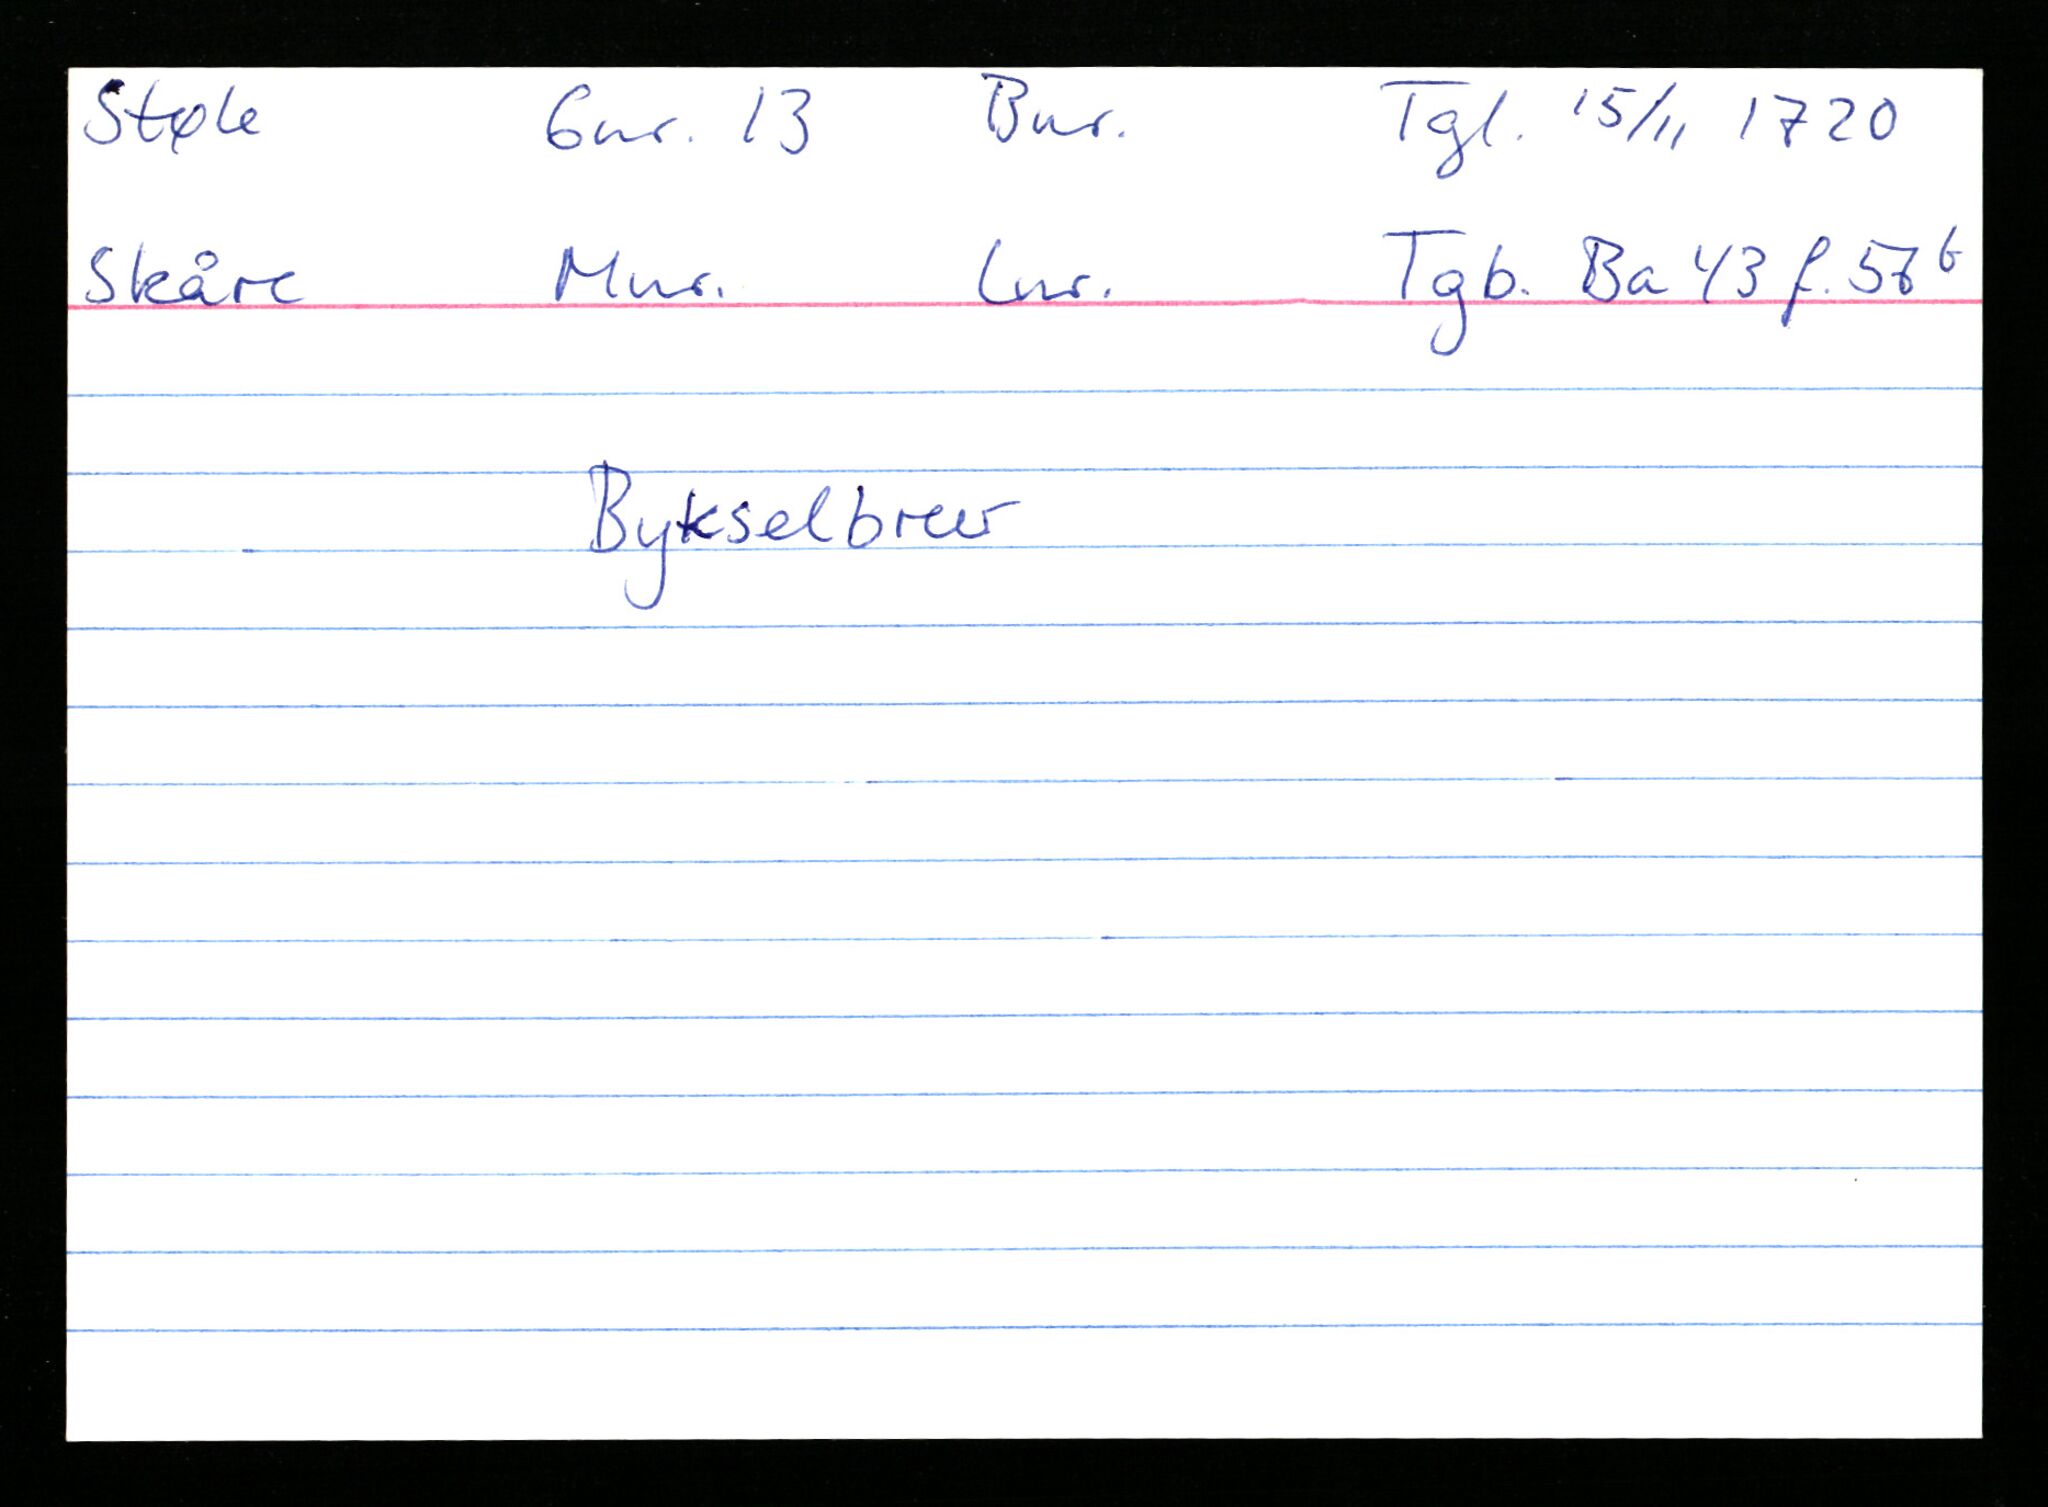 Støle Gnr. 13 Bnr. Tgl. 15/11 1720
Skåre Mnr. Lnr. Tgb. Ba 43 f. b
Bykselbrev